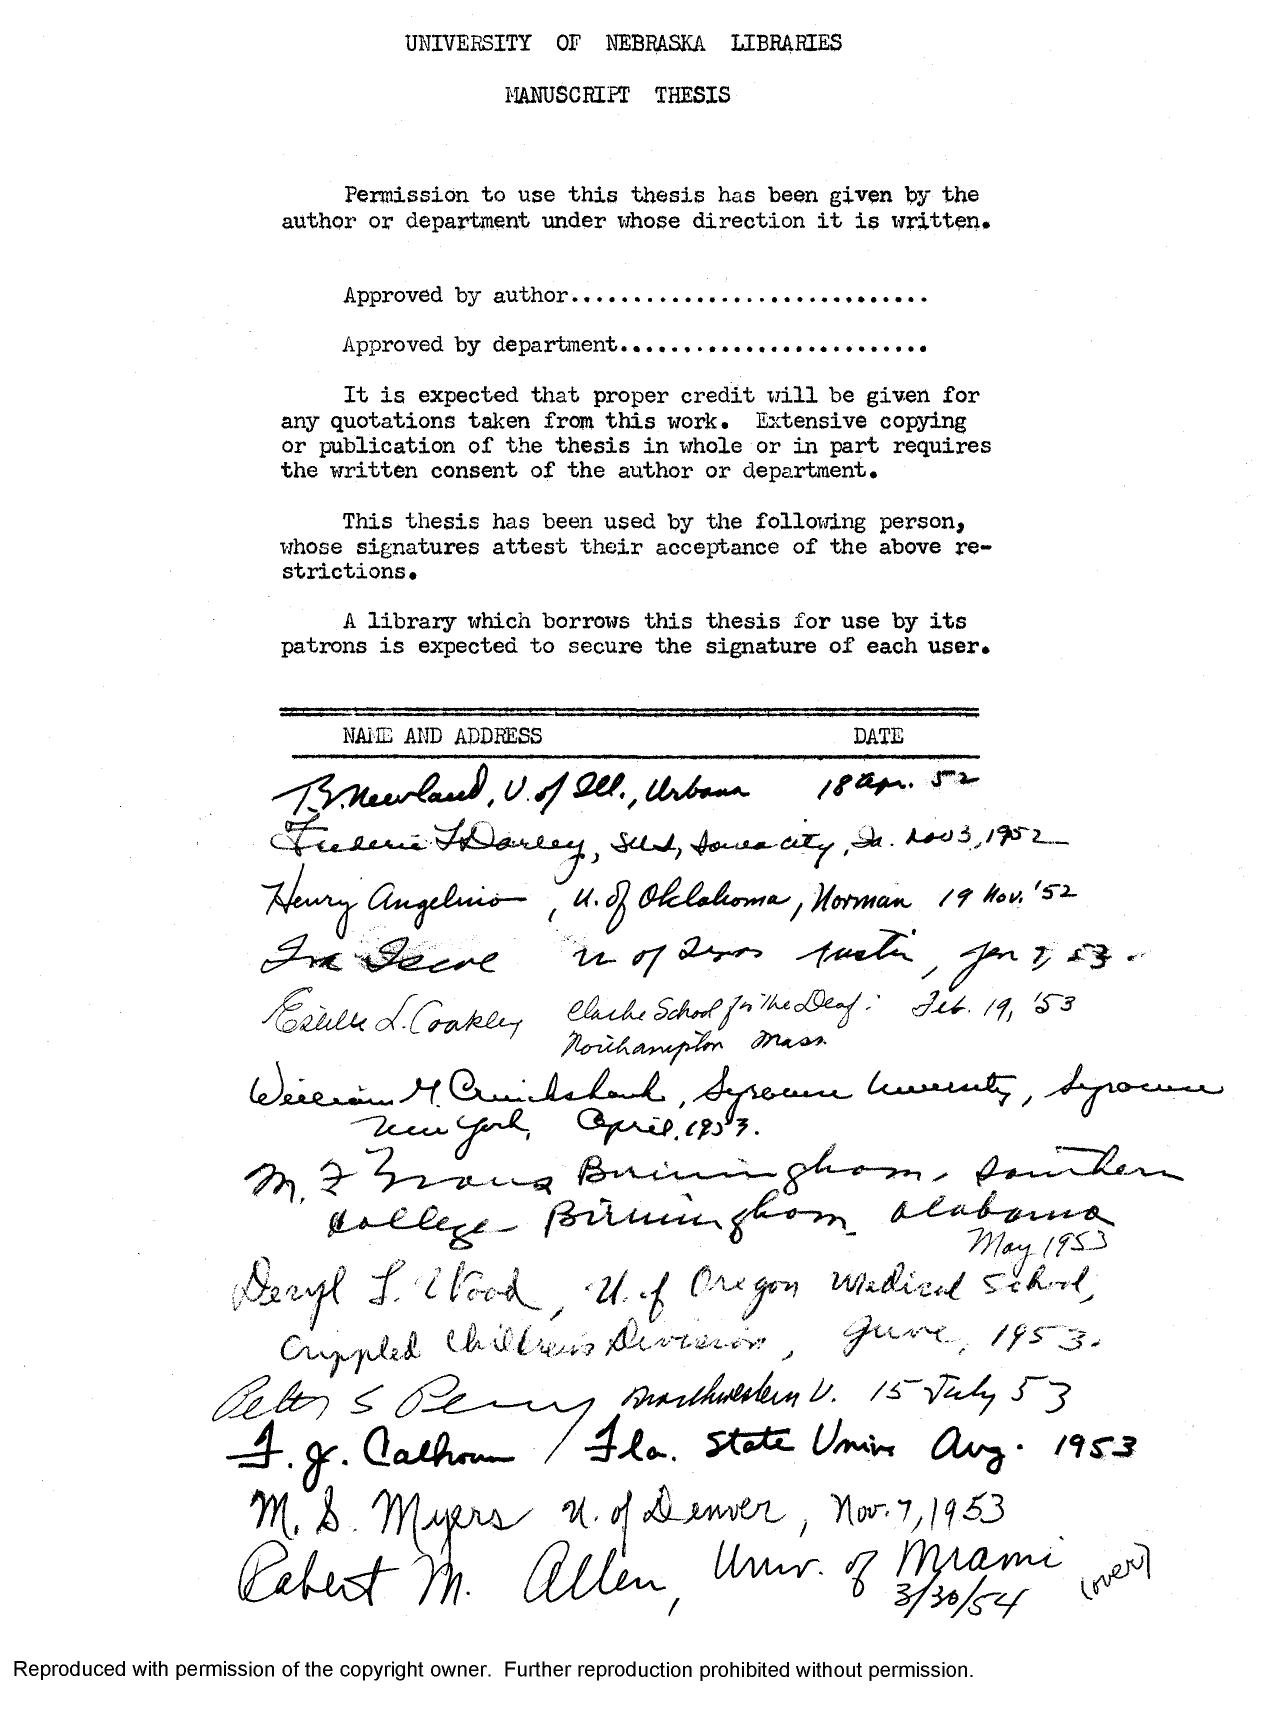 UNIVERSITY OF NEBRASKA LIBRARIES
MANUSCRIPT THESIS
Permission to use this thesis has been given by the
author or department under whose direction it is written.
Approved by author.............................
Approved by department.........................
It is expected that proper credit will be given for
any quotations taken from this work. Extensive copying
or publication of the thesis in whole or in part requires
the written consent of the author or department.
This thesis has been used by the following person,
whose signatures attest their acceptance of the above re-
strictions.
A library which borrows this thesis for use by its
patrons is expected to secure the signature of each user.
NAME AND ADDRESS DATE
Newland, U. of Ill., Urbana 18 Apr. 52
Frederic L Darley, SUI, Iowa City, Ia. Nov 3, 1952
Henry Angelino, U. of Oklahoma, Norman 19 Nov. '52
Ira Iscoe U of Texas Austin, Jan 7, 53.
Estelle L. Coakley Clarke School for the Deaf: Feb. 19, '53
Northampton Mass.
William M. Cruickshank, Syracuse University, Syracuse
New York, April, 1953.
M. F Evans Birmingham-Southern
College Birmingham Alabama
May 1953
Deryl L. Wood, U. of Oregon Medical School,
Crippled Children's Division, June, 1953.
S Northwestern U. 15 July 53
F. J. Calhoun / Fla. State Univ Aug. 1953
M. S. Myers U. of Denver, Nov. 7, 1953
Robert M. Allen, Univ. of Miami
3/30/54 (over)
Reproduced with permission of the copyright owner. Further reproduction prohibited without permission.